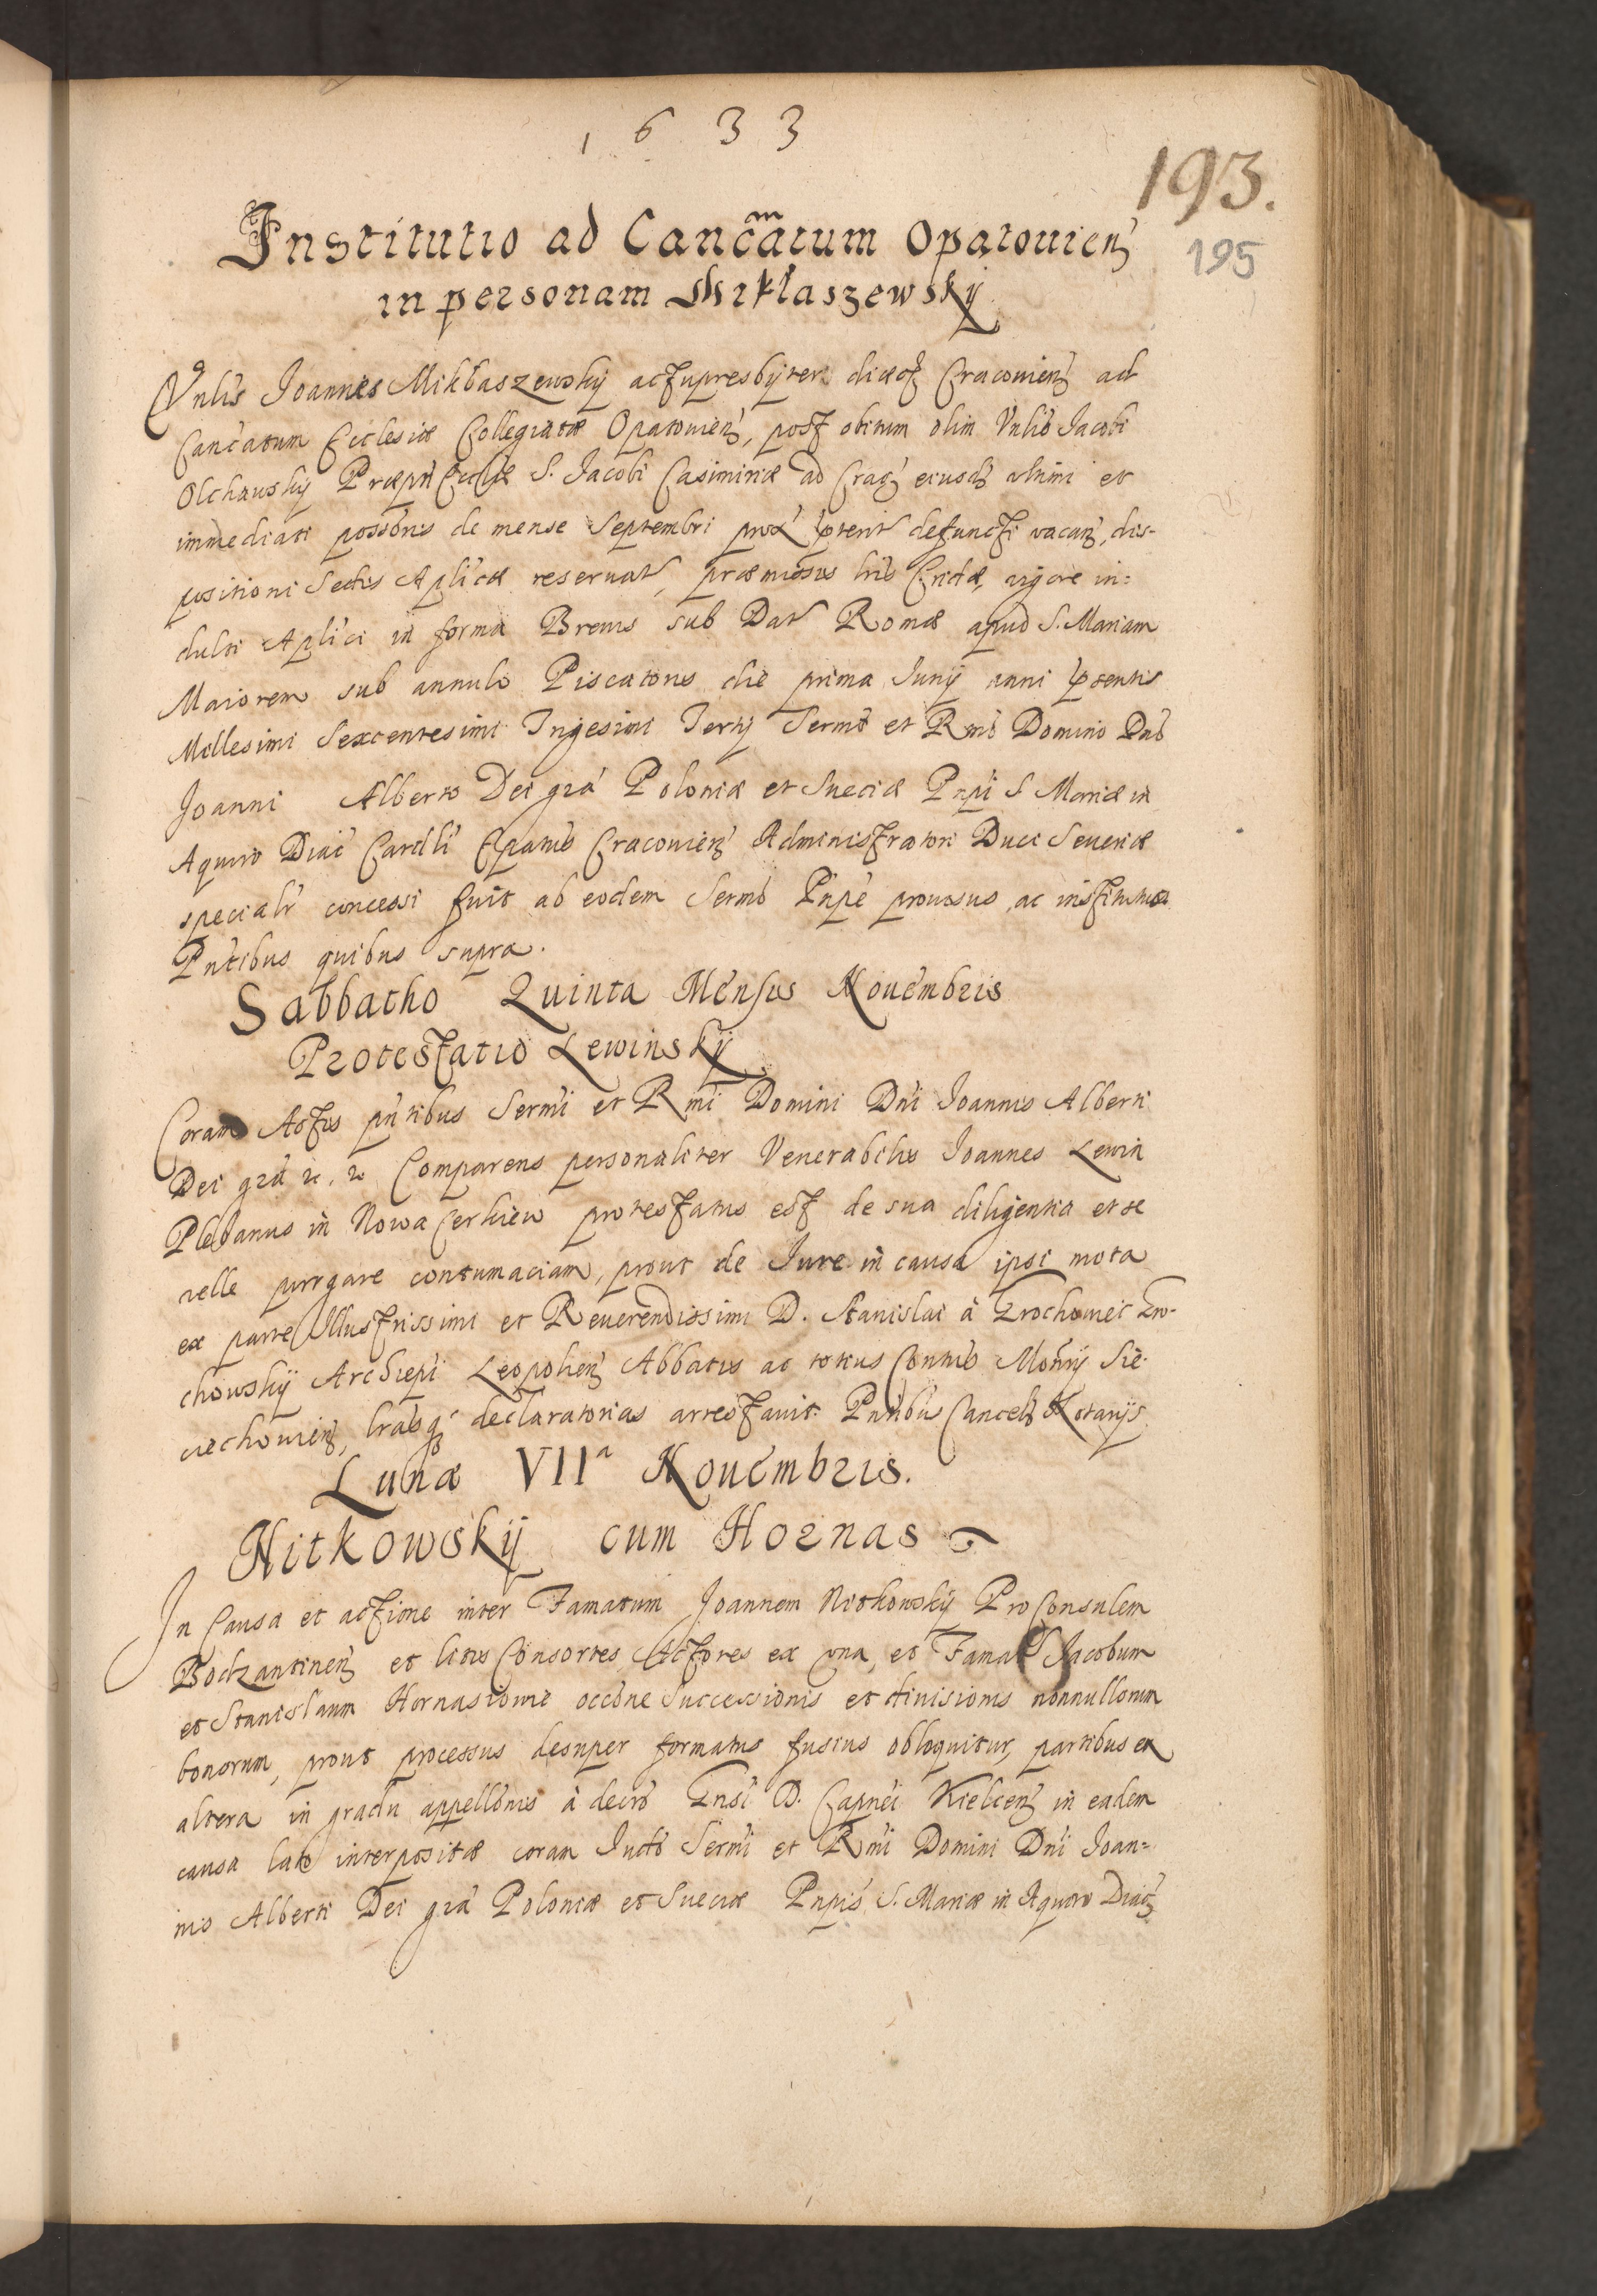 1633
193.
195
Institutio ad Canc̃atum Opatouien̄
in personam Miklaszewskÿ
Vnlis Joannes Miklaszewskÿ actu presbÿter diœc̄ Cracouien̄ ad
Cancatum Ecclesiæ Collegiatæ Opatouien̄, post obitum olim Vnlis Jacobi
Olchawskÿ Præpti Eccliæ S. Jacobi Casimiriæ ad Crac̄ eiusd̄ vltimi et
immediati possōris de mense Septembri prox̄ p̄terit defuncti vacan̄, dis-
positioni Sedis Aplicæ reseruat, præmissis lris Cridæ, vigore in=
dulti Aplici in forma Breuis sub Dat Romæ apud S. Mariam
Maiorem sub annulo Piscatoris die prima Junÿ anni p̄sentis
Millesimi Sexcentesimi Trigesimi Tertÿ Sermo et Rmo Domino Dno
Joanni Alberto Dei grã Poloniæ et Sueciæ Pnpi S Mariæ in
Aquiro Diac Cardli Epatus Cracouien̄ Administratori Duci Seueriæ
specialr concessi fuit ab eodem Sermo Pnpe prouisus ac institutus
Pntibus quibus supra.
Sabbatho Quinta Mensis Nouembris
Protestatio Lewinskÿ
Coram Actis pntibus Sermi et Rmi Domini Dni Joannis Alberti
Dei grã &c. &c Comparens personaliter Venerabilis Joannes Lewin
Plebanus in Nowa Cerkiew protestatus est de sua diligentia et se
velle purgare contumaciam, prout de Jure in causa ipsi mota
ex parte Illustrissimi et Reuerendissimi D. Stanislai à Grochowic Gro-
chowskÿ Archiepi Leopolien̄ Abbatis ac totius Contus Monrÿ Sie-
ciechouien̄, lrasq declaratorias arrestauit. Pntibus Cancel Notarÿs
Lunæ VIIa Nouembris.
Nitkowskÿ cum Hornas
In Causa et actione inter Famatum Joannem Nitkowskÿ ProConsulem
Bodzantinen̄ et litis Consortes Actores ex vna, et Famat Jacobum
et Stanislaum Hornasiowie occōne Successionis et diuisionis nonnullorum
bonorum, prout processus desuper formatus fusius obloquitur, partibus ex
altera in gradu appellōnis à decro Gnsi D. Capnei Kielcen̄ in eadem
causa lato interpositæ coram Judō Sermi et Rmi Domini Dni Joan=
nis Alberti Dei grã Poloniæ et Sueciæ Pnpis S. Mariæ in Aquiro Diac̄